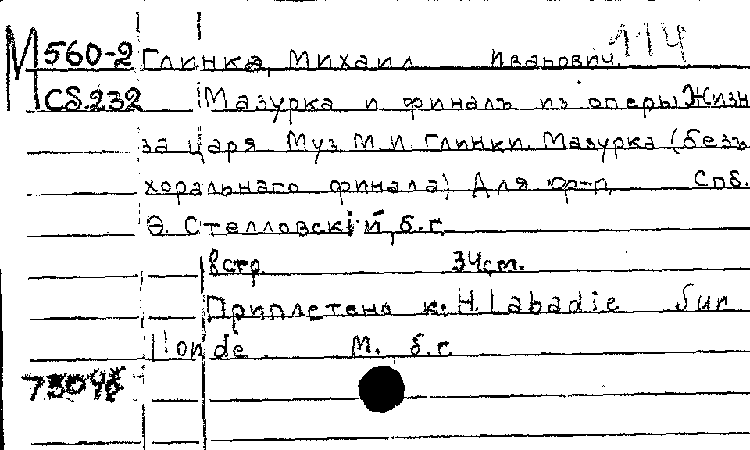 М 560-2 Глинка, Михаил Иванович. 114
Сб.232 Мазурка и финалъ из оперы Жизн
за царя Муз М И Глинки. Мазурка (безъ
хоральнаго финала) Для фр-п. Спб.
Ѳ. Стелловскій, б.г.
8 стр 34 cm.
Приплетено к: H. Labadie Sur
l'onde M. б.г.